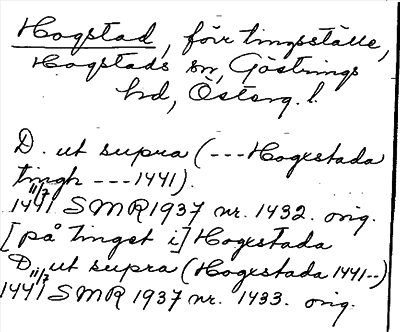 Hogstad, förr tingsställe,
Hogstads sn, Göstrings
hd, Österg. l.
D. ut supra (---Hogestada
tingh ---1441).
1441 11/7 SMR 1937 nr. 1432. orig.
[på tinget i] Hogestada
D. ut supra (Hogestada 1441--)
1441 11/7 SMR 1937 nr. 1433. orig.